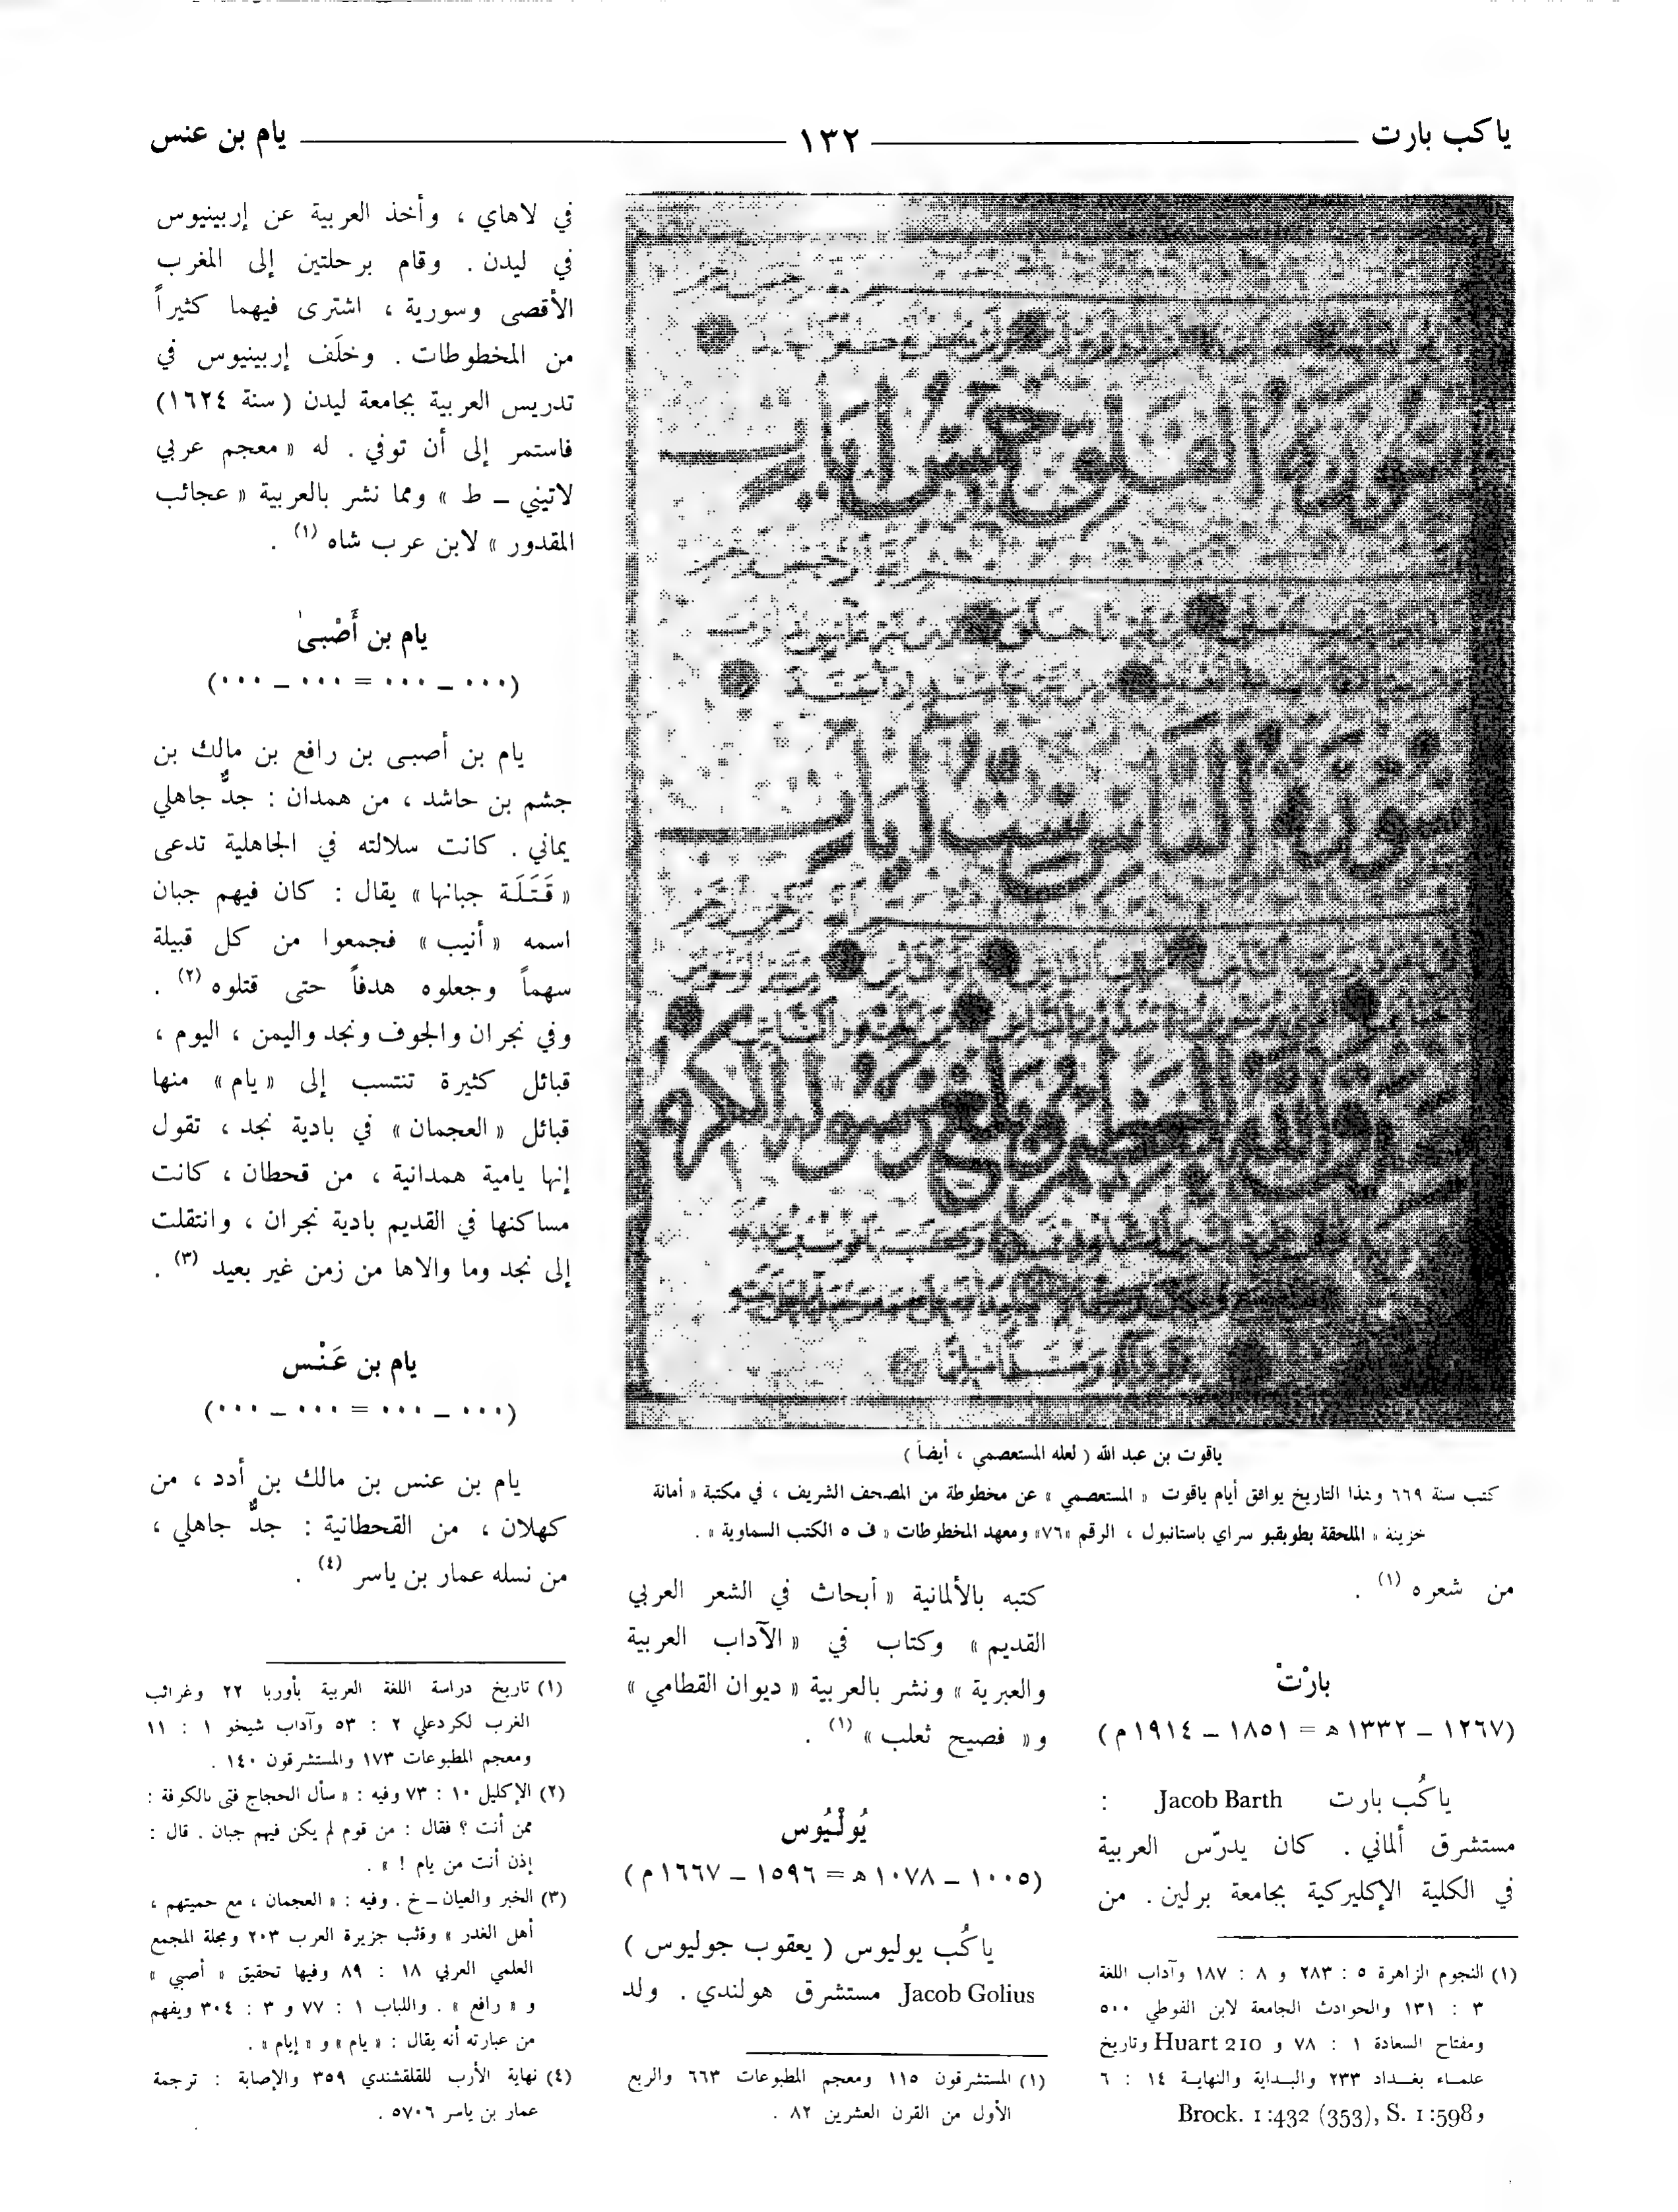 ياكب بارت
١٣٢
يام بن عنس
ياقوت بن عبد الله ( لعله المستعصمي ، أيضاً )
كتب سنة ٦٦٩ وهذا التاريخ يوافق أيام ياقوت « المستعصمي » عن مخطوطة من المصحف الشريف ، في مكتبة « أمانة
خزينة » الملحقة بطوبقبو سراي باستانبول ، الرقم «٧٦» ومعهد المخطوطات « ف ٥ الكتب السماوية » .
من شعره (١) .
بارْتْ
(١٢٦٧ – ١٣٣٢ هـ = ١٨٥١ – ١٩١٤ م)
ياكُب بارت Jacob Barth :
مستشرق ألماني . كان يدرّس العربية
في الكلية الإكليركية بجامعة برلين . من
(١) النجوم الزاهرة ٥ : ٢٨٣ و ٨ : ١٨٧ وآداب اللغة
٣ : ١٣١ والحوادث الجامعة لابن الفوطي ٥٠٠
ومفتاح السعادة ١ : ٧٨ و Huart 210 وتاريخ
علمـاء بغـداد ٢٣٣ والبـداية والنهايـة ١٤ : ٦
و Brock. 1:432 (353), S. 1:598
كتبه بالألمانية « أبحاث في الشعر العربي
القديم » وكتاب في « الآداب العربية
والعبرية » ونشر بالعربية « ديوان القطامي »
و« فصيح ثعلب » (١) .
يُولْيُوس
(١٠٠٥ – ١٠٧٨ هـ = ١٥٩٦ – ١٦٦٧ م)
ياكُب يوليوس ( يعقوب جوليوس )
Jacob Golius مستشرق هولندي . ولد
(١) المستشرقون ١١٥ ومعجم المطبوعات ٦٦٣ والربع
الأول من القرن العشرين ٨٢ .
في لاهاي ، وأخذ العربية عن إربينيوس
في ليدن . وقام برحلتين إلى المغرب
الأقصى وسورية ، اشترى فيهما كثيراً
من المخطوطات . وخلَف إربينيوس في
تدريس العربية بجامعة ليدن ( سنة ١٦٢٤)
فاستمر إلى أن توفي . له « معجم عربي
لاتيني – ط » ومما نشر بالعربية « عجائب
المقدور » لابن عرب شاه (١) .
يام بن أَصْبىٰ
(٠٠٠ – ٠٠٠ = ٠٠٠ – ٠٠٠)
يام بن أصبى بن رافع بن مالك بن
جشم بن حاشد ، من همدان : جدٌّ جاهلي
يماني . كانت سلالته في الجاهلية تدعى
« قَتَلَة جبانها » يقال : كان فيهم جبان
اسمه « أنيب » فجمعوا من كل قبيلة
سهماً وجعلوه هدفاً حتى قتلوه (٢) .
وفي نجران والجوف ونجد واليمن ، اليوم ،
قبائل كثيرة تنتسب إلى « يام » منها
قبائل « العجمان » في بادية نجد ، تقول
إنها يامية همدانية ، من قحطان ، كانت
مساكنها في القديم بادية نجران ، وانتقلت
إلى نجد وما والاها من زمن غير بعيد (٣) .
يام بن عَنْس
(٠٠٠ – ٠٠٠ = ٠٠٠ – ٠٠٠)
يام بن عنس بن مالك بن أدد ، من
كهلان ، من القحطانية : جدٌّ جاهلي ،
من نسله عمار بن ياسر (٤) .
(١) تاريخ دراسة اللغة العربية بأوربا ٢٢ وغرائب
الغرب لكردعلي ٢ : ٥٣ وآداب شيخو ١ : ١١
ومعجم المطبوعات ١٧٣ والمستشرقون ١٤٠ .
(٢) الإكليل ١٠ : ٧٣ وفيه : « سأل الحجاج فتى بالكوفة :
ممن أنت ؟ فقال : من قوم لم يكن فيهم جبان . قال :
إذن أنت من يام ! » .
(٣) الخبر والعيان – خ . وفيه : « العجمان ، مع حميتهم ،
أهل الغدر » وقلب جزيرة العرب ٢٠٣ ومجلة المجمع
العلمي العربي ١٨ : ٨٩ وفيها تحقيق « أصبي »
و « رافع » . واللباب ١ : ٧٧ و ٣ : ٣٠٤ ويفهم
من عبارته أنه يقال : « يام » و « إيام » .
(٤) نهاية الأرب للقلقشندي ٣٥٩ والإصابة : ترجمة
عمار بن ياسر ٥٧٠٦ .